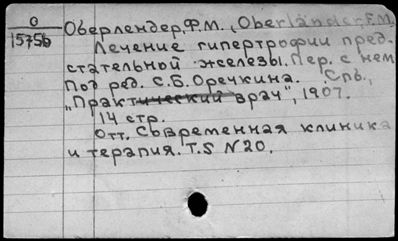 О
15756
Оберлендер, Ф.М., (Oberländer, F.M.
Лечение гипертрофии пред-
стательной железы. Пер. с нем
Под ред. С.Б. Оречкина. Спб.,
„Практический врач", 1907.
14 стр.
Отт. Современная клиника
и терапия. Т.5 N20.